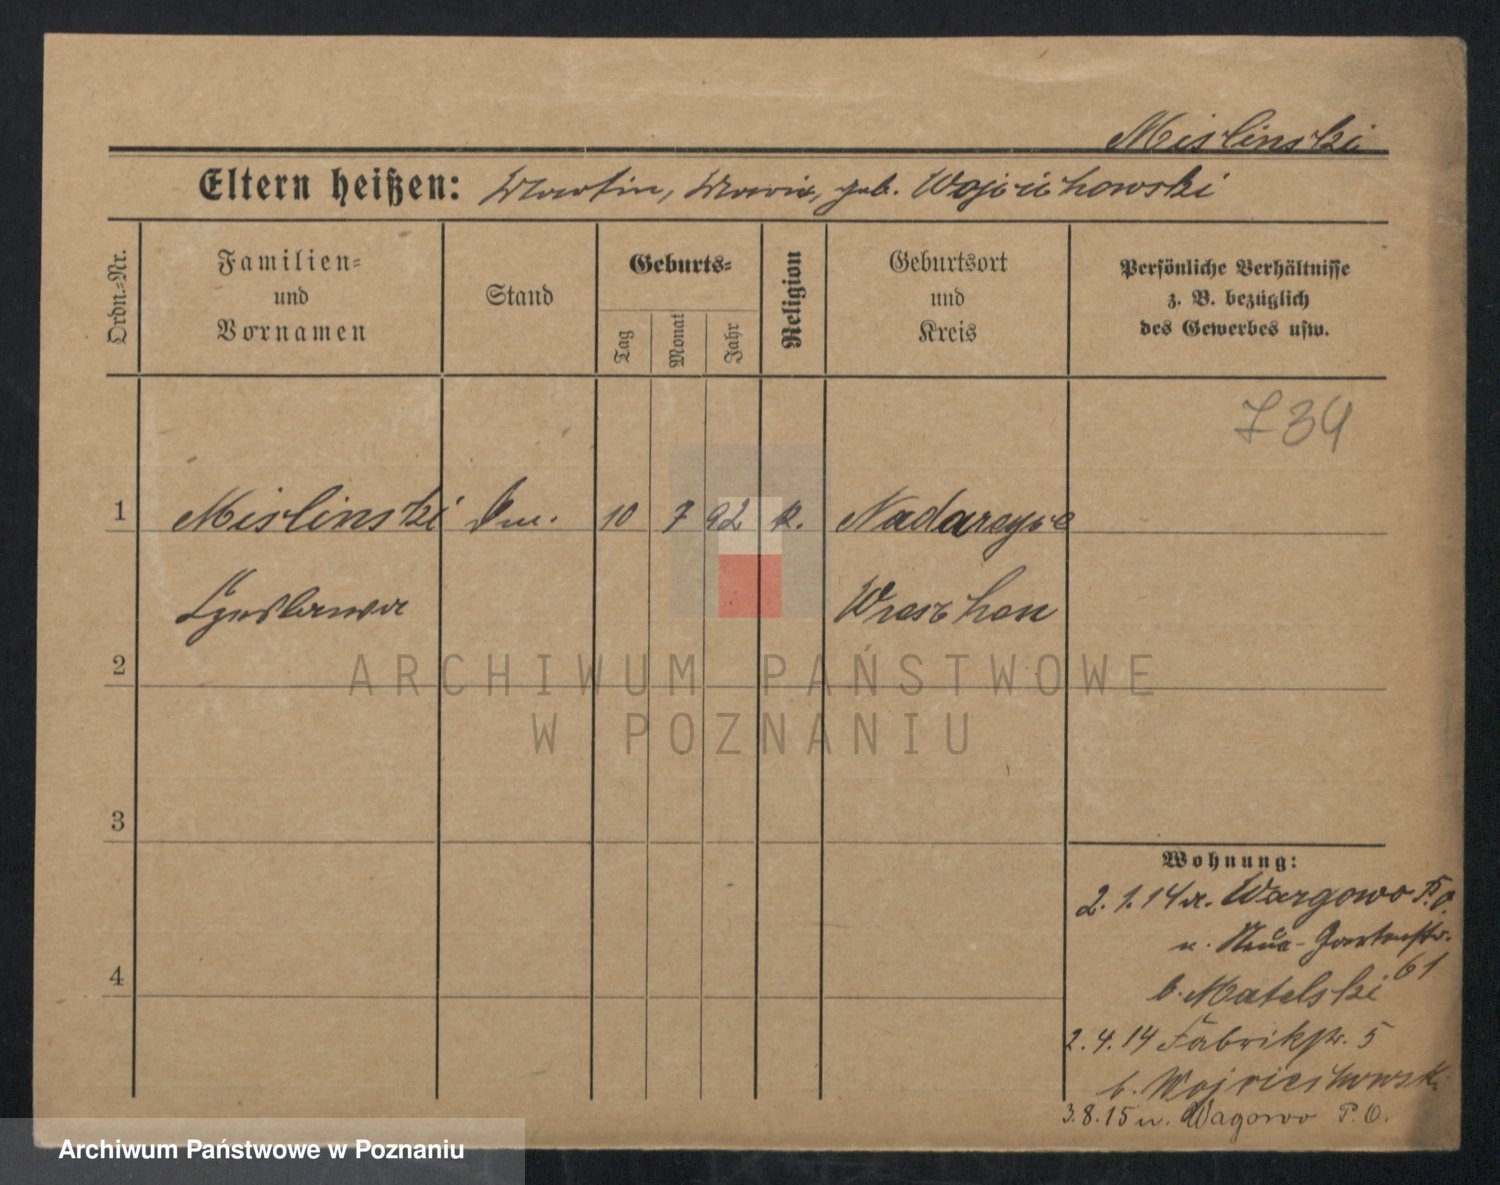 Mislinski
Eltern heißen: Martin, Maria, geb. Wojciechowski
Ordn.-Nr.
Familien-
und
Vornamen
Stand
Geburts-
Tag
Monat
Jahr
Religion
Geburtsort
und
Kreis
Persönliche Verhältnisse
z. B. bezüglich
des Gewerbes usw.
734
1 Mislinski 10 7 92 k.
Czeslawa Wreschen
2
ARCHIWUM PAŃSTWOWE
W POZNANIU
3
4
Wohnung:
2. 1. 14 Wargowo P. O.
n. Neue-Gartenstr.
61
b. Matelski
2. 4. 14 Fabrikstr. 5
b. Wojciechowski
3. 8. 15 n. Wagowo P. O.
Archiwum Państwowe w Poznaniu